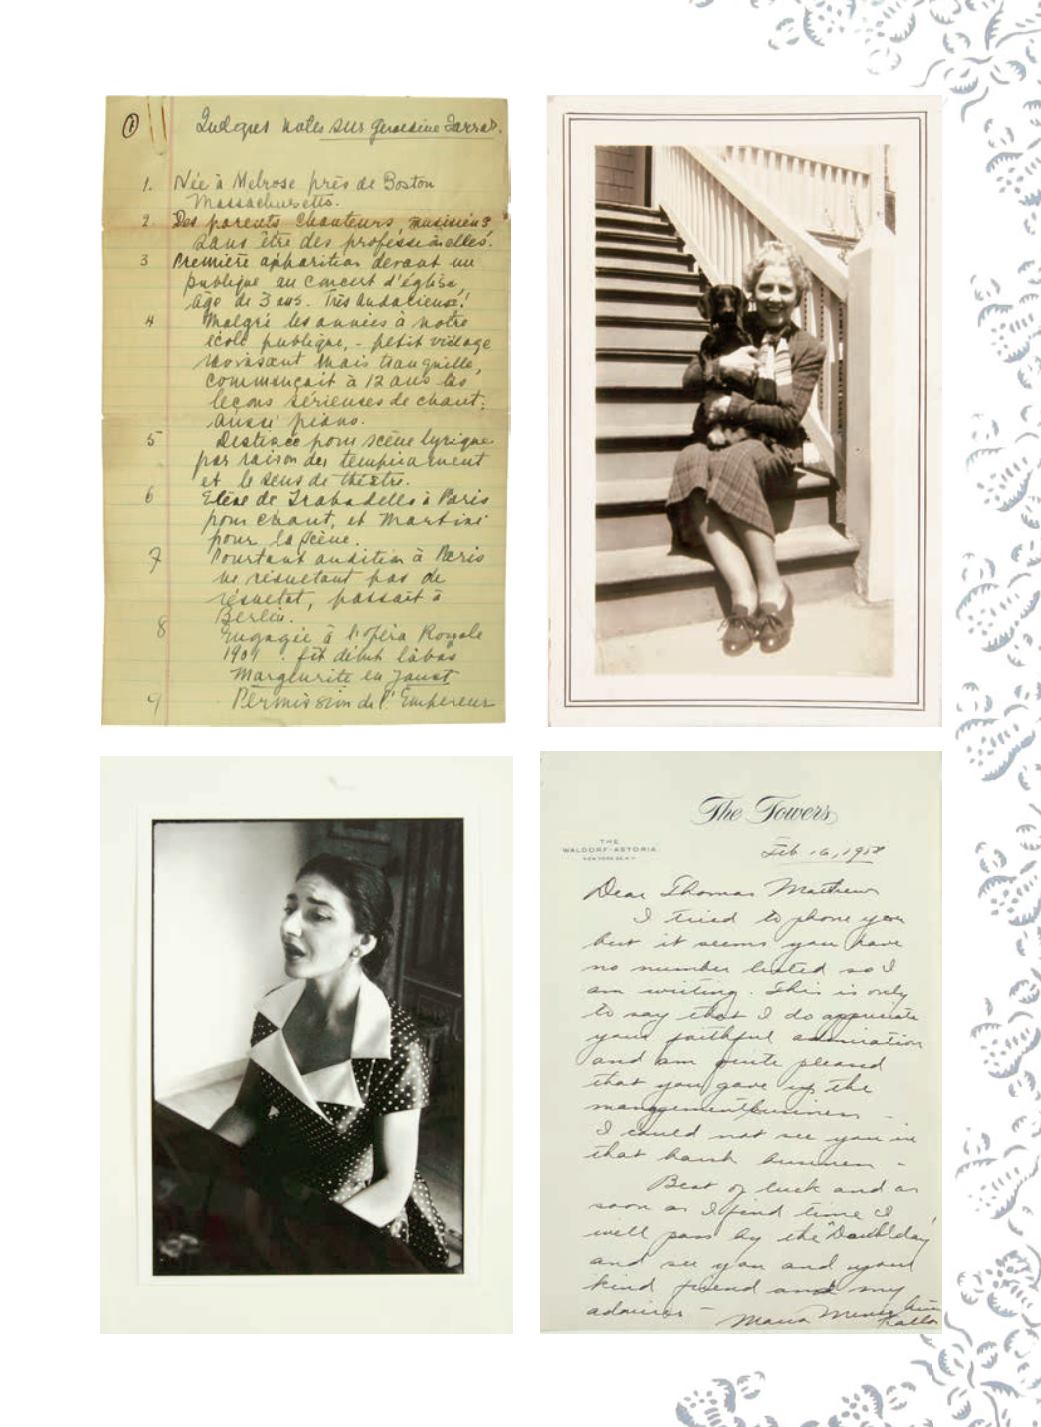 ①
Quelques notes sur Geraldine Farrar.
1. Née à Melrose près de Boston
Massachusetts.
2 Des parents chanteurs, musiciens
sans être des professionelles.
3 Première apparition devant un
publique au concert d'église,
âge de 3 ans. Très audacieuse!
4 Malgré les années à notre
école publique, - petit village
ravissant mais tranquille,
commençait à 12 ans les
leçons sérieuses de chant;
aussi piano.
5 Destinée pour scène lyrique
par raison des tempérament
et le sens de théâtre.
6 Elève de Trabadello à Paris
pour chant, et Martini
pour la scène.
7 Pourtant audition à Paris
ne résultant pas de
résultat, passait à
Berlin.
8 Engagée à l'opéra Royale
1901. fit début làbas
Marguerite en Faust
9 Permission de l'Empereur
The Towers
THE
WALDORF-ASTORIA
NEW YORK
Feb. 16, 1958
Dear Thomas Mathew
I tried to phone you
but it seems you have
no number listed so I
am writing. This is only
to say that I do appreciate
your faithful admiration
and am quite pleased
that you gave up the
management business -
I could not see you in
that harsh business -
Best of luck and as
soon as I find time I
will pass by the "Doubleday"
and see you and your
kind friend and my
admirer - Maria Meneghini
Kallas